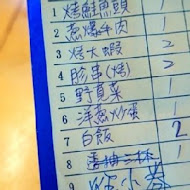 1 烤鮭魚頭 1
2 蔥爆牛肉 1
3 烤大蝦 2
4 胗串(烤) 2
5 野蔬菜 1
6 洋蔥炒蛋 1
7 白飯 2
8
9 小卷